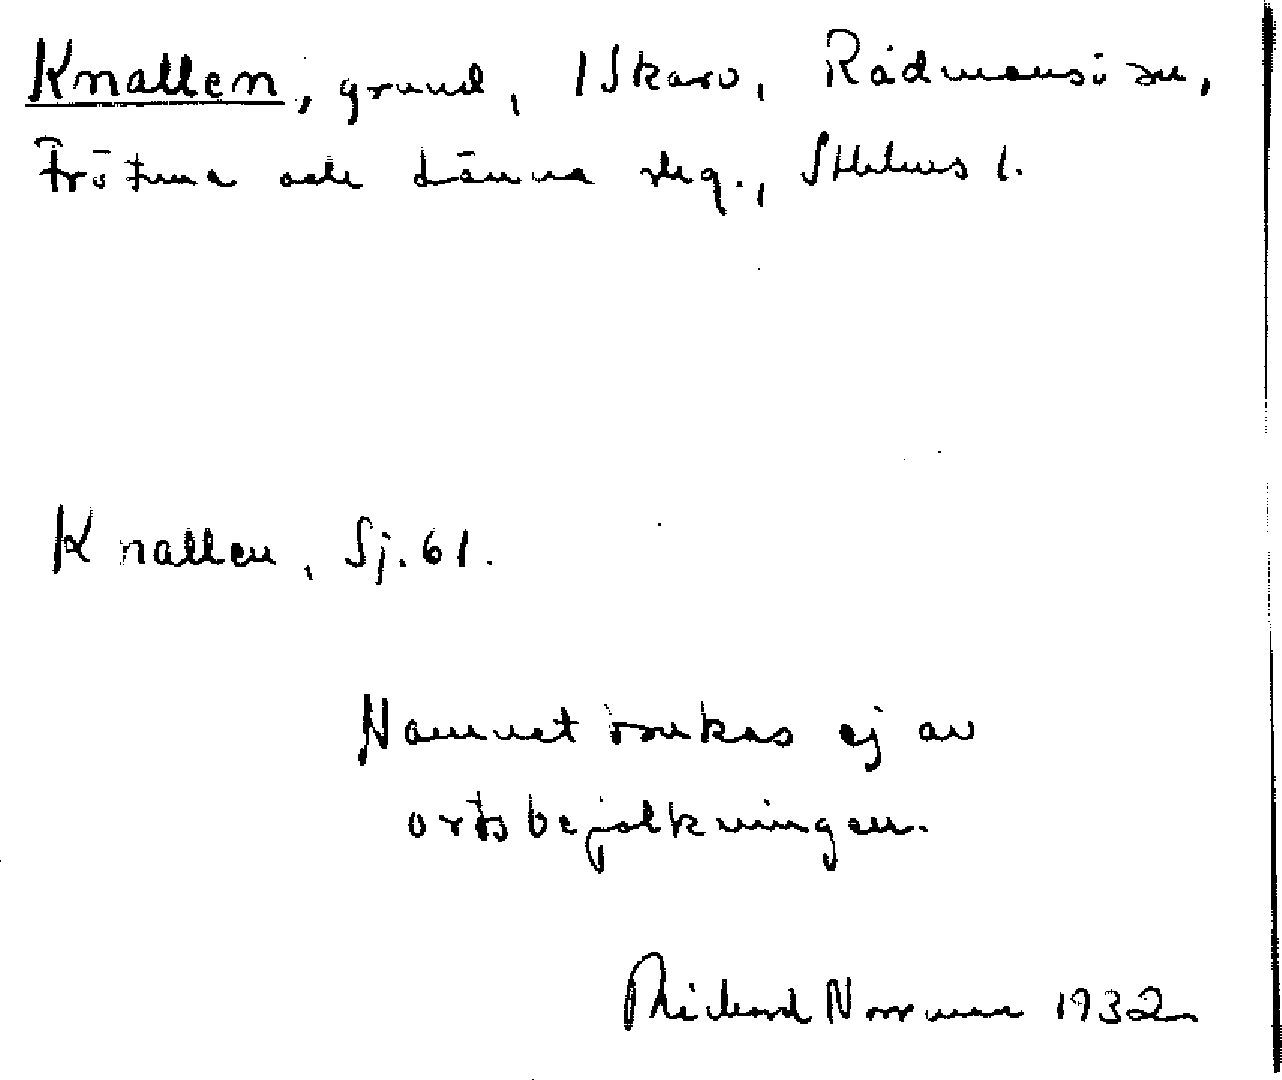 Knallen, grund, i Skärv, Rådmansö sn,
Frötuna och Länna skg., Sthlms l.
Knallen, Sj. 61.
Namnet brukas ej av
ortsbefolkningen.
Richard Norrman 1932